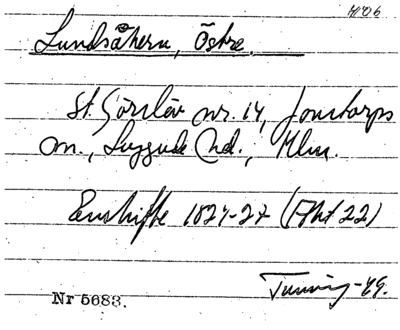 H/06
Lundsåkern, Östre
St. Görslöv nr. 14, Jonstorps
sn., Luggude hd., Mlm.
Enskifte 1824-27 (Akt 22)
Tuning -49.
Nr 5683.